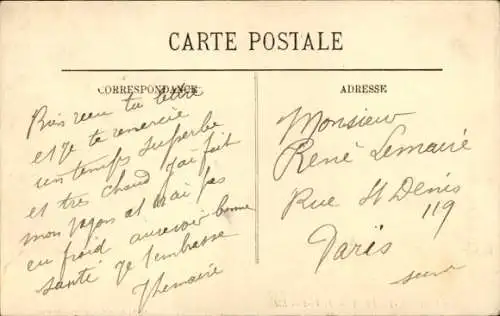 CARTE POSTALE
CORRESPONDANCE
Bien recu ta lettre
et je te remercie
un temps superbe
et tres chaud j'ai fait
mon
en froid aurevoir bonne
santé je t'embrasse
Lemaire
ADRESSE
Monsieur
René Lemaire
Rue St Denis
119
Paris